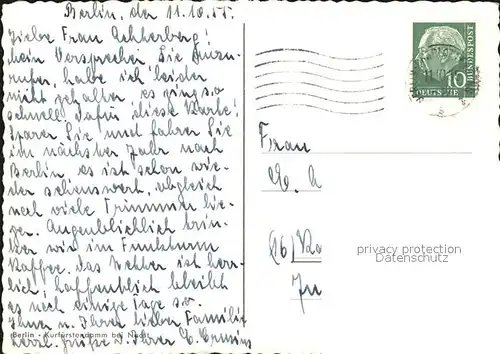 Berlin, den 11.10.55.
Liebe Frau Achterberg!
Mein Versprechen Sie Anzu-
rufen, habe ich leider
nicht gehalten, es ging so
schnell. Dafür diese Karte!
Sparen Sie und fahren Sie
im nächsten Jahr nach
Berlin, es ist schon wie-
der sehenswert, obgleich
noch viele Trümmer lie-
gen. Augenblicklich trin-
ken wir im Funkturm
Kaffee, das Wetter ist herr-
lich, hoffentlich bleibt
es noch einige Tage so.
Ihnen u. Ihrer lieben Familie
herzl. Grüße
Berlin - Kurfürstendamm bei Nacht
10
DEUTSCHE
BUNDESPOST
Frau
(16)
privacy protection
compliant with GDPR